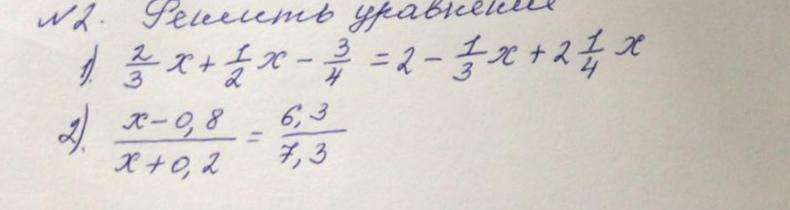 №2. Решить уравнение
1). 2/3 x + 1/2 x - 3/4 = 2 - 1/3 x + 2 1/4 x
2). (x - 0,8)/(x + 0,2) = 6,3/7,3